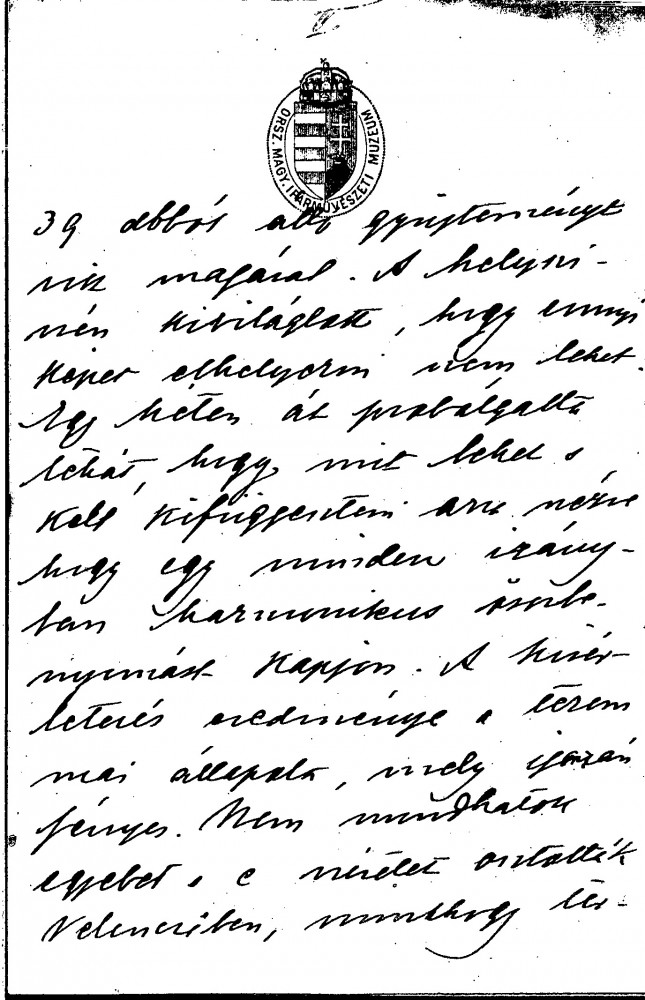 ORSZ. MAGY. IPARMŰVÉSZETI MUZEUM
39 dbból álló gyüjteményt
visz magával. A helyszi-
nén kiviláglott, hogy ennyi
képet elhelyezni nem lehet.
Egy héten át probálgatta
tehát, hogy mit lehet s
kell kifüggeszteni arra nézve
hogy egy minden irány-
ban harmonikus össbe-
nyomást kapjon. A kisér-
letezés eredménye a terem
mai állapota, mely igazán
fényes. Nem mondhatok
egyebet s e nézetet osztották
Velenczében, minthogy tér-